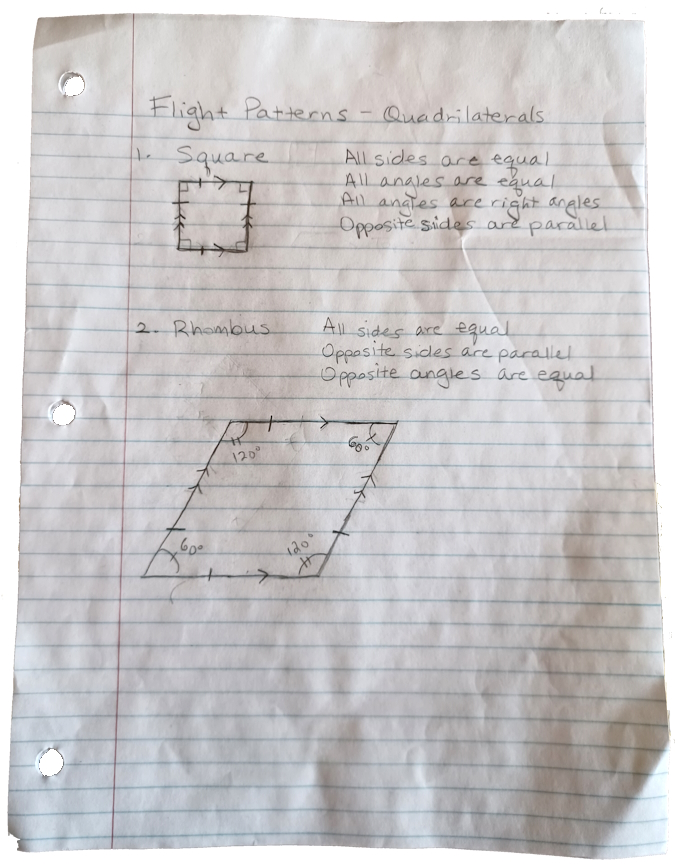 Flight Patterns - Quadrilaterals
1. Square
All sides are equal
All angles are equal
All angles are right angles
Opposite sides are parallel
2. Rhombus
All sides are equal
Opposite sides are parallel
Opposite angles are equal
120°
60°
60°
120°